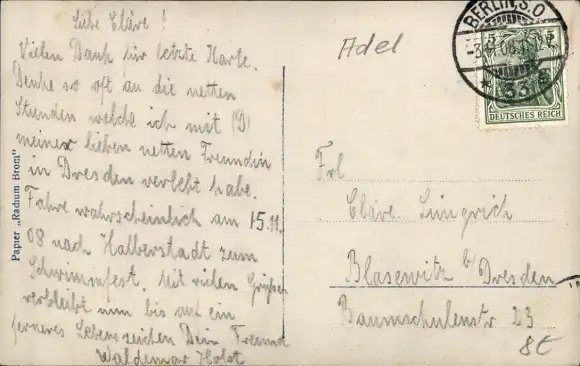 Liebe Cläre!
Vielen Dank für letzte Karte.
Denke so oft an die netten
Stunden welche ich mit (D)
meiner lieben netten Freundin
in Dresden verlebt habe.
Fahre wahrscheinlich am 15.11.
08 nach Halberstadt zum
Schwimmfest. Mit vielen Grüßen
verbleibt nun bis auf ein
ferneres Lebenszeichen Dein Freund
Waldemar Holst
Papier „Radium Brom"
Adel
BERLIN S.O
33
5 5
DEUTSCHES REICH
Frl
Cläre Lingrich
Blasewitz b/ Dresden
Baumschulenstr 23
8€